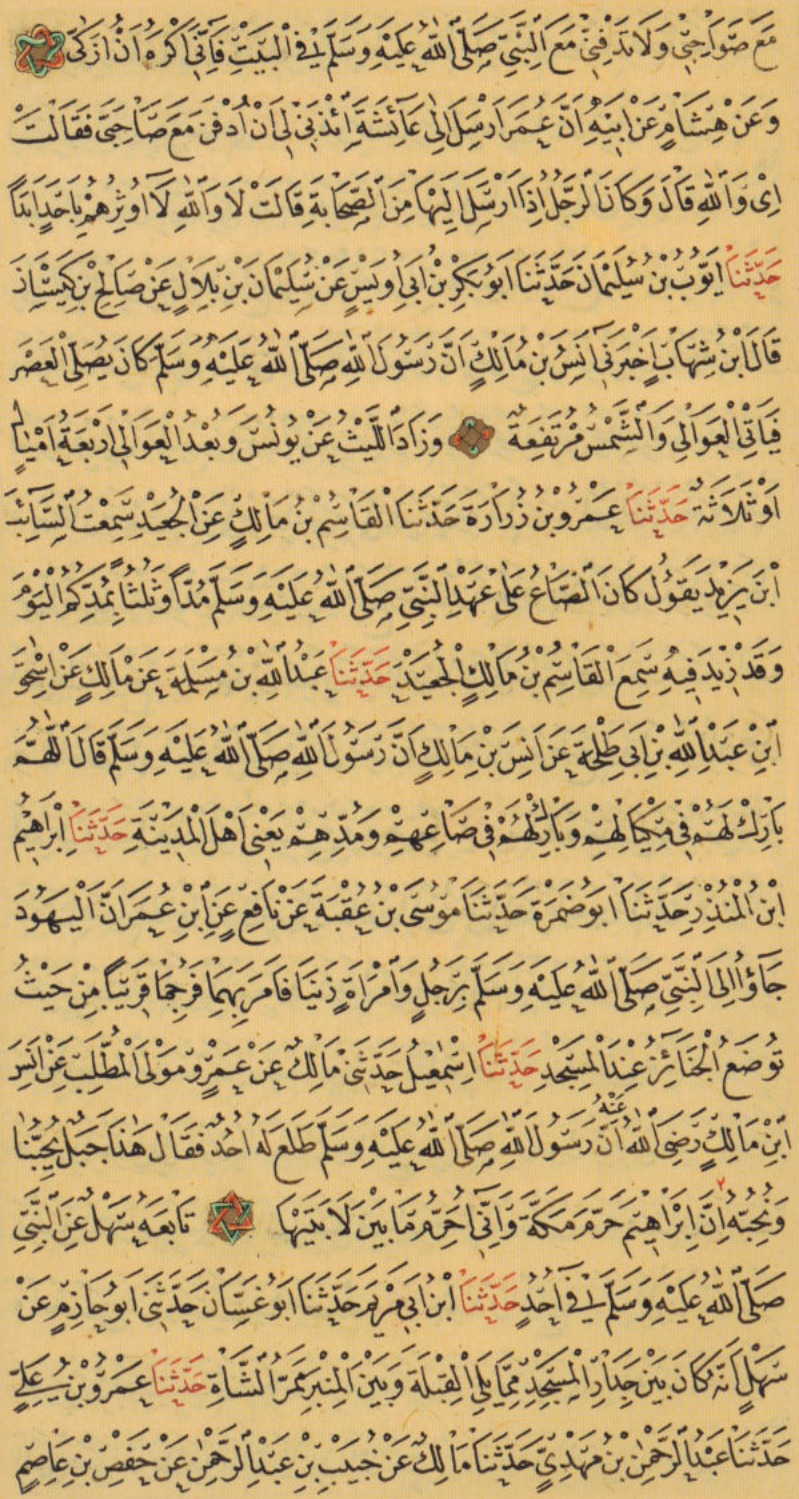 مَعَ صَوَاحِبِي وَلَا تَدْفِنِّي مَعَ النَّبِيِّ صَلَّى اللهُ عَلَيْهِ وَسَلَّمَ فِي الْبَيْتِ فَاِنِّي اَكْرَهُ اَنْ اُزَكّٰى
وَعَنْ هِشَامٍ عَنْ اَبِيهِ اَنَّ عُمَرَ اَرْسَلَ اِلٰى عَآئِشَةَ ائْذَنِي لِي اَنْ اُدْفَنَ مَعَ صَاحِبَيَّ فَقَالَتْ
اِيْ وَاللهِ قَالَ وَكَانَ الرَّجُلُ اِذَا اَرْسَلَ اِلَيْهَا مِنَ الصَّحَابَةِ قَالَتْ لَا وَاللهِ لَا اُوثِرُهُمْ بِاَحَدٍ اَبَدًا
حَدَّثَنَا اَيُّوبُ بْنُ سُلَيْمَانَ حَدَّثَنَا اَبُو بَكْرِ بْنُ اَبِي اُوَيْسٍ عَنْ سُلَيْمَانَ بْنِ بِلَالٍ عَنْ صَالِحِ بْنِ كَيْسَانَ
قَالَ ابْنُ شِهَابٍ اَخْبَرَنِي اَنَسُ بْنُ مَالِكٍ اَنَّ رَسُولَ اللهِ صَلَّى اللهُ عَلَيْهِ وَسَلَّمَ كَانَ يُصَلِّي الْعَصْرَ
فَيَاْتِي الْعَوَالِيَ وَالشَّمْسُ مُرْتَفِعَةٌ وَزَادَ اللَّيْثُ عَنْ يُونُسَ وَبُعْدُ الْعَوَالِي اَرْبَعَةُ اَمْيَالٍ
اَوْ ثَلَاثَةٌ حَدَّثَنَا عَمْرُو بْنُ زُرَارَةَ حَدَّثَنَا الْقَاسِمُ بْنُ مَالِكٍ عَنِ الْجُعَيْدِ سَمِعْتُ السَّآئِبَ
ابْنَ يَزِيدَ يَقُولُ كَانَ الصَّاعُ عَلٰى عَهْدِ النَّبِيِّ صَلَّى اللهُ عَلَيْهِ وَسَلَّمَ مُدًّا وَثُلُثًا بِمُدِّكُمُ الْيَوْمَ
وَقَدْ زِيدَ فِيهِ سَمِعَ الْقَاسِمُ بْنُ مَالِكٍ الْجُعَيْدَ حَدَّثَنَا عَبْدُ اللهِ بْنُ مَسْلَمَةَ عَنْ مَالِكٍ عَنْ اِسْحٰقَ
ابْنِ عَبْدِ اللهِ بْنِ اَبِي طَلْحَةَ عَنْ اَنَسِ بْنِ مَالِكٍ اَنَّ رَسُولَ اللهِ صَلَّى اللهُ عَلَيْهِ وَسَلَّمَ قَالَ اللّٰهُمَّ
بَارِكْ لَهُمْ فِي مِكْيَالِهِمْ وَبَارِكْ لَهُمْ فِي صَاعِهِمْ وَمُدِّهِمْ يَعْنِي اَهْلَ الْمَدِينَةِ حَدَّثَنَا اِبْرَاهِيمُ
ابْنُ الْمُنْذِرِ حَدَّثَنَا اَبُو ضَمْرَةَ حَدَّثَنَا مُوسَى بْنُ عُقْبَةَ عَنْ نَافِعٍ عَنِ ابْنِ عُمَرَ اَنَّ الْيَهُودَ
جَآؤُا اِلَى النَّبِيِّ صَلَّى اللهُ عَلَيْهِ وَسَلَّمَ بِرَجُلٍ وَامْرَاَةٍ زَنَيَا فَاَمَرَ بِهِمَا فَرُجِمَا قَرِيبًا مِنْ حَيْثُ
تُوضَعُ الْجَنَآئِزُ عِنْدَ الْمَسْجِدِ حَدَّثَنَا اِسْمٰعِيلُ حَدَّثَنِي مَالِكٌ عَنْ عَمْرٍو مَوْلَى الْمُطَّلِبِ عَنْ اَنَسِ
ابْنِ مَالِكٍ رَضِيَ اللهُ عَنْهُ اَنَّ رَسُولَ اللهِ صَلَّى اللهُ عَلَيْهِ وَسَلَّمَ طَلَعَ لَهُ اُحُدٌ فَقَالَ هٰذَا جَبَلٌ يُحِبُّنَا
وَنُحِبُّهُ اِنَّ اِبْرَاهِيمَ حَرَّمَ مَكَّةَ وَاِنِّي اُحَرِّمُ مَا بَيْنَ لَابَتَيْهَا تَابَعَهُ سَهْلٌ عَنِ النَّبِيِّ
صَلَّى اللهُ عَلَيْهِ وَسَلَّمَ فِي اُحُدٍ حَدَّثَنَا ابْنُ اَبِي مَرْيَمَ حَدَّثَنَا اَبُو غَسَّانَ حَدَّثَنِي اَبُو حَازِمٍ عَنْ
سَهْلٍ اَنَّهُ كَانَ بَيْنَ جِدَارِ الْمَسْجِدِ مِمَّا يَلِي الْقِبْلَةَ وَبَيْنَ الْمِنْبَرِ مَمَرُّ الشَّاةِ حَدَّثَنَا عَمْرُو بْنُ عَلِيٍّ
حَدَّثَنَا عَبْدُ الرَّحْمٰنِ بْنُ مَهْدِيٍّ حَدَّثَنَا مَالِكٌ عَنْ خُبَيْبِ بْنِ عَبْدِ الرَّحْمٰنِ عَنْ حَفْصِ بْنِ عَاصِمٍ